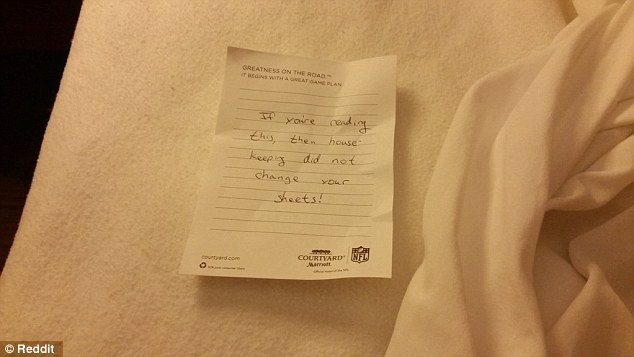 GREATNESS ON THE ROAD™
IT BEGINS WITH A GREAT GAME PLAN
If you're reading
this, then house
keeping did not
change your
sheets!
courtyard.com
COURTYARD®
Marriott
NFL
© Reddit